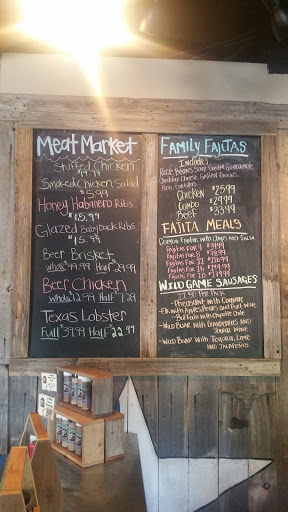 Meat Market
Stuffed Chicken
Smoked Chicken Salad
$5.99
Honey Habanero Ribs
$15.99
Glazed Baby Back Ribs
$15.99
Beer Brisket
Whole 49.99 Half $29.99
Beer Chicken
Whole $12.99 Half $7.29
Texas Lobster
Full $39.99 Half $22.99
Family Fajitas
Includes
Rice, Beans, Sour Cream, Guacamole,
Cheddar Cheese, Grilled Onions,
Chicken $25.99
Combo $29.99
Beef $33.99
Fajita Meals
Combo Fajitas with Chips and Salsa
Fajitas for
Fajitas for
Fajitas for
Fajitas for
Fajitas for
Wild Game Sausages
Pheasant with Cognac
Elk with Apples, Pears and Port Wine
Buffalo with Chipotle Chile
Wild Boar with Cranberries and
Shiraz Wine
Wild Boar with Tequila, Lime
and Jalapeños